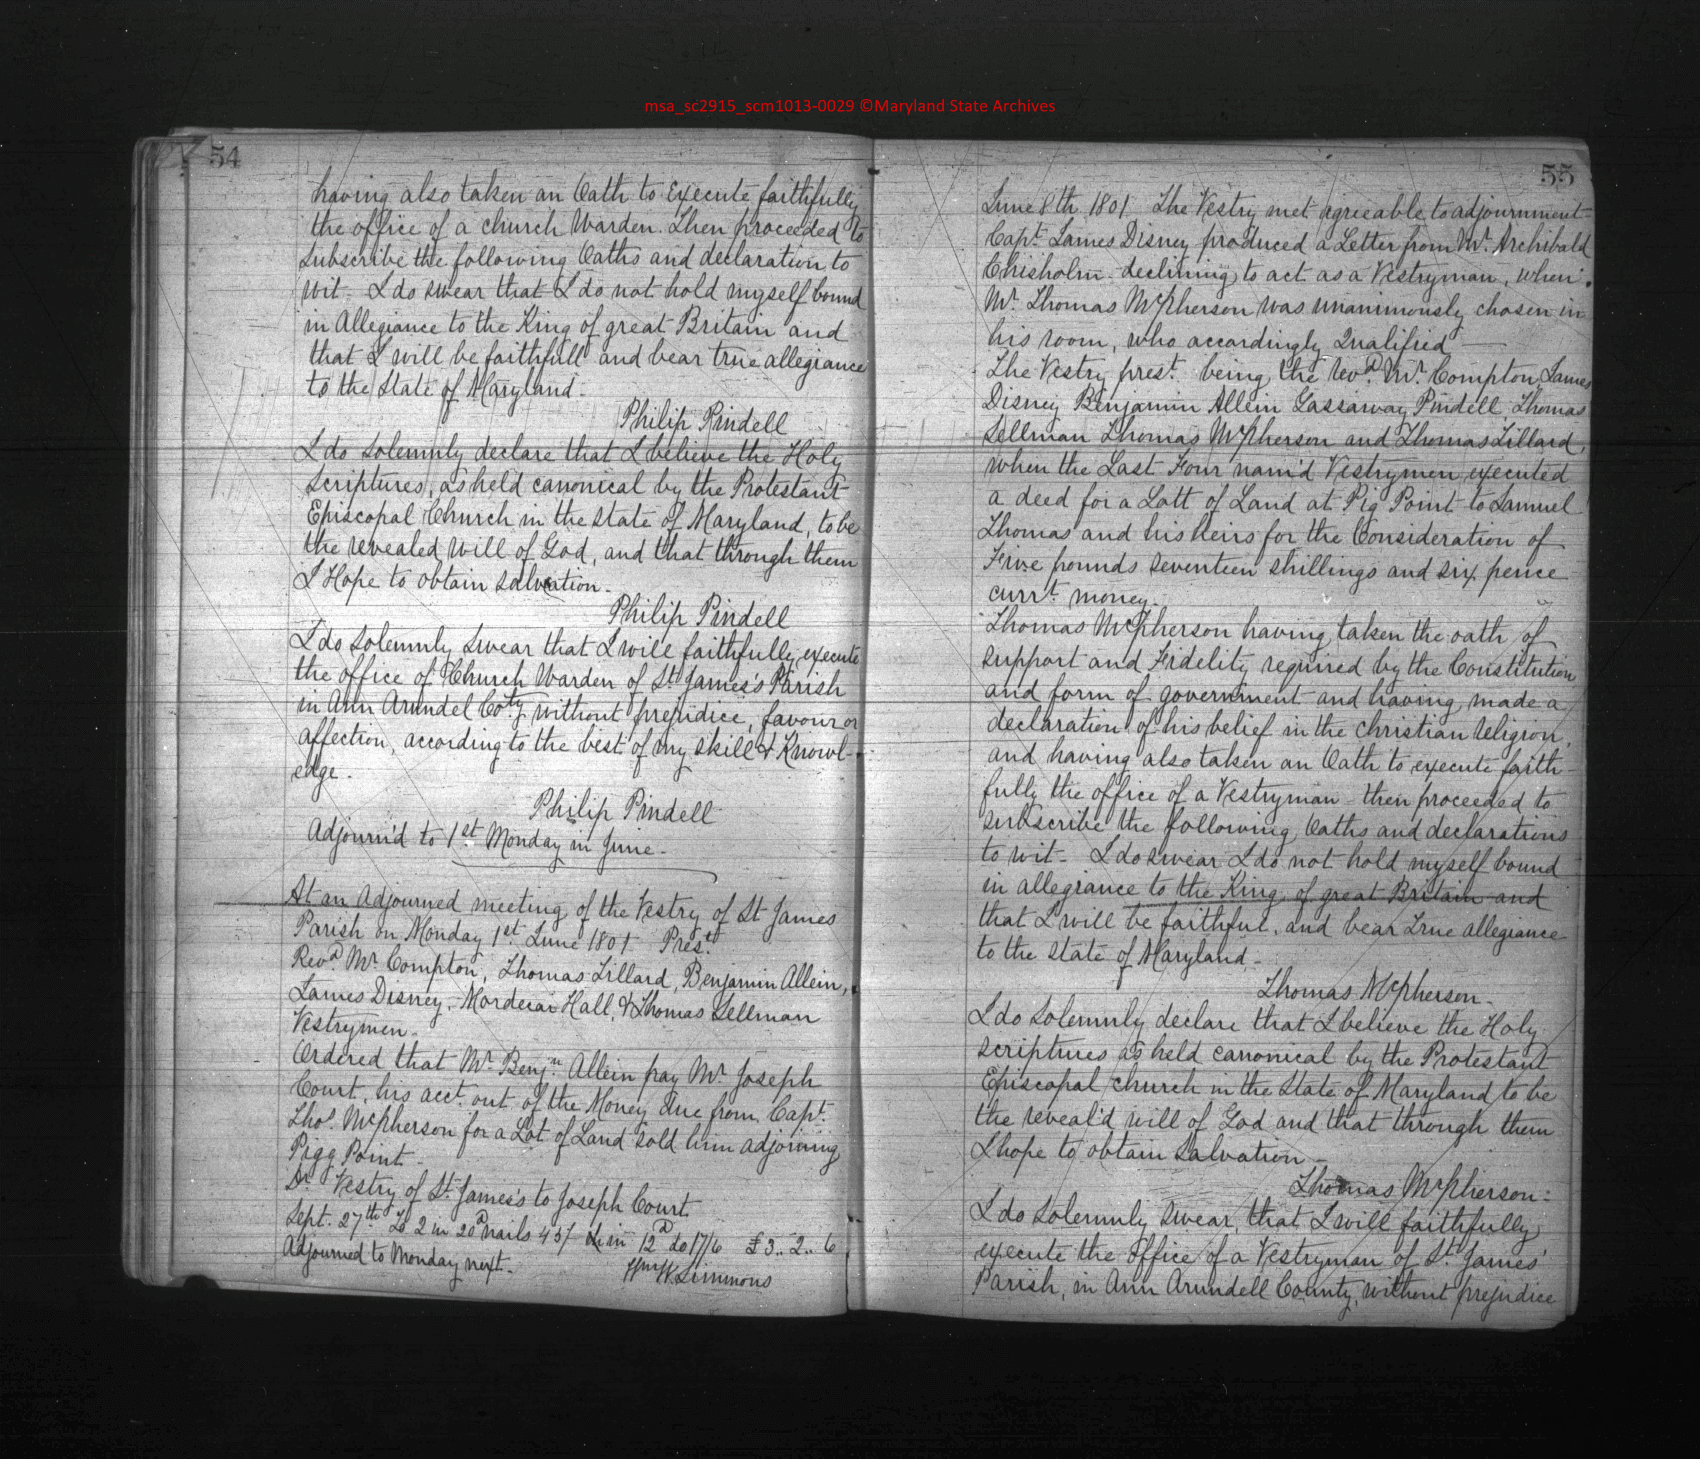 msa_sc2915_scm1013-0029 ©Maryland State Archives
54
having also taken an Oath to Execute faithfully
the office of a church Warden. Then proceeded to
subscribe the following Oaths and declaration to
wit - I do swear that I do not hold myself bound
in Allegiance to the King of great Britain and
that I will be faithfull and bear true allegiance
to the State of Maryland -
Philip Pindell
I do Solemnly declare that I believe the Holy
Scriptures, as held canonical by the Protestant
Episcopal Church in the State of Maryland, to be
the revealed Will of God, and that through them
I Hope to obtain salvation -
Philip Pindell
I do Solemnly Swear that I will faithfully execute
the office of Church Warden of St James's Parish
in Ann Arundel Coty without prejudice, favour or
affection, according to the best of my skill & Knowl-
edge -
Philip Pindell
Adjourn'd to 1st Monday in June -
At an Adjourned meeting of the Vestry of St James
Parish on Monday 1st June 1801 Prest
Revd Mr Compton, Thomas Tillard, Benjamin Allein,
James Disney, Mordecai Hall, & Thomas Sellman
Vestrymen -
Ordered that Mr Benjn Allein pay Mr Joseph
Court, his acct. out of the Money due from Capt.
Thos. McPherson for a Lot of Land sold him adjoining
Pigg Point -
Dr Vestry of St. James's to Joseph Court
Sept. 27th To 2 in 20d nails 45/ in 12d do 17/6 £3..2..6
Adjourned to Monday next -
Wm W Simmons
55
June 8th 1801 The Vestry met agreeable to adjournment
Capt. James Disney produced a Letter from Mr. Archibald
Chisholm declining to act as a Vestryman, when
Mr. Thomas McPherson was unanimously chosen in
his room, who accordingly Qualified
The Vestry prest. being the Revd. Mr. Compton, James
Disney Benjamin Allein Gassaway Pindell, Thomas
Sellman Thomas McPherson and Thomas Tillard,
when the Last Four nam'd Vestrymen executed
a deed for a Lott of Land at Pig Point to Samuel
Thomas and his heirs for the Consideration of
Five pounds seventeen shillings and six pence
currt. money -
Thomas McPherson having taken the oath of
support and Fidelity required by the Constitution
and form of government and having made a
declaration of his belief in the christian religion,
and having also taken an Oath to execute faith-
fully the office of a Vestryman - then proceeded to
subscribe the following Oaths and declarations
to wit - I do swear I do not hold myself bound
in allegiance to the King of great Britain and
that I will be faithful, and bear True allegiance
to the State of Maryland -
Thomas McPherson -
I do Solemnly declare that I believe the Holy
scriptures as held canonical by the Protestant
Episcopal church in the State of Maryland to be
the reveal'd will of God and that through them
I hope to obtain Salvation -
Thomas McPherson -
I do Solemnly Swear, that I will faithfully
execute the office of a Vestryman of St. James'
Parish, in Ann Arundell County, without prejudice